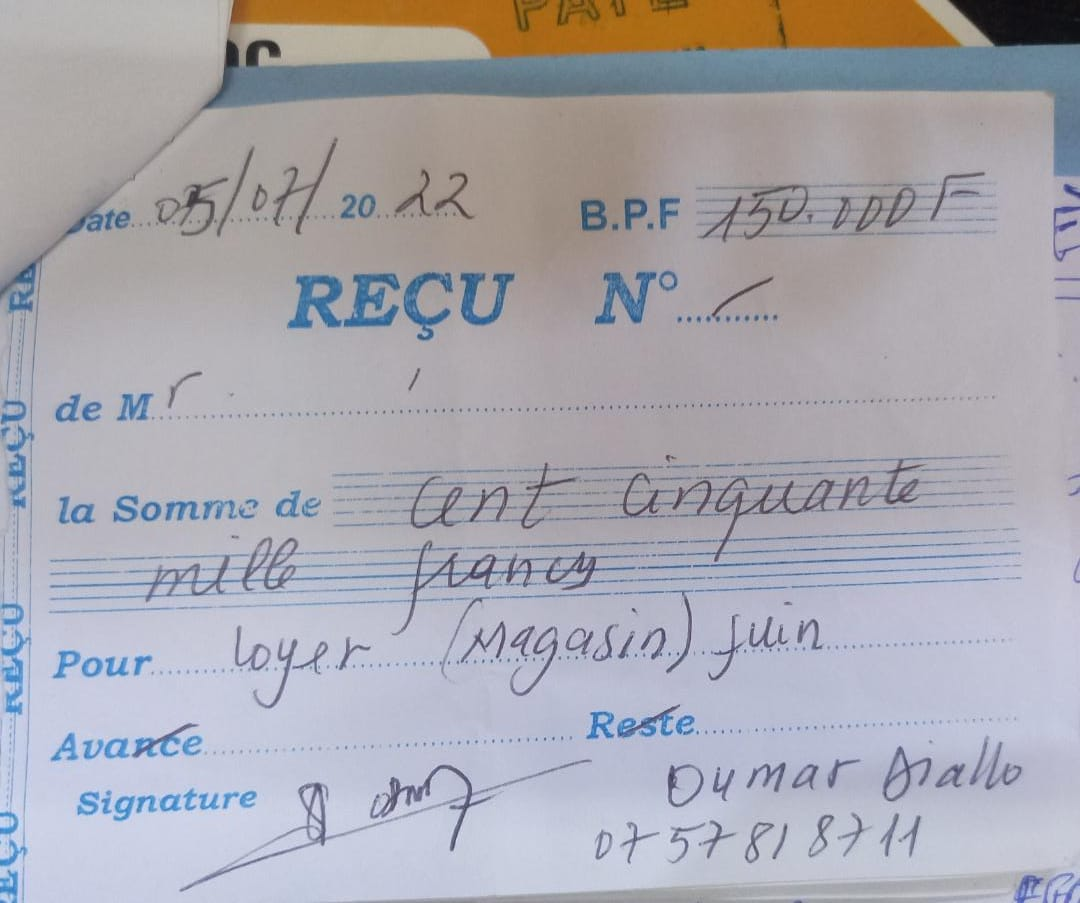 PAYÉ
Date 05/07/ 20 22 B.P.F 150.000 F
REÇU N°
de Mr
la Somme de cent cinquante
mille francs
Pour loyer (Magasin) Juin
Avance Reste
Signature Oumar Diallo
07 57 81 87 11
REÇU
REÇU
REÇU